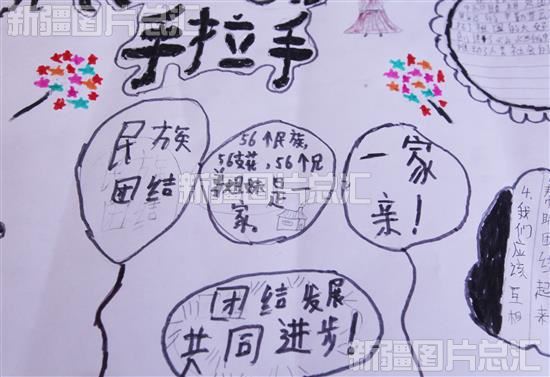 新疆图片总汇
手拉手
民族
团结
56个民族,
56支花,56个兄
弟姐妹是一
家。
一家
亲!
新疆图片总汇
团结发展
共同进步!
4.我们应该互相
帮助团结起来
新疆图片总汇